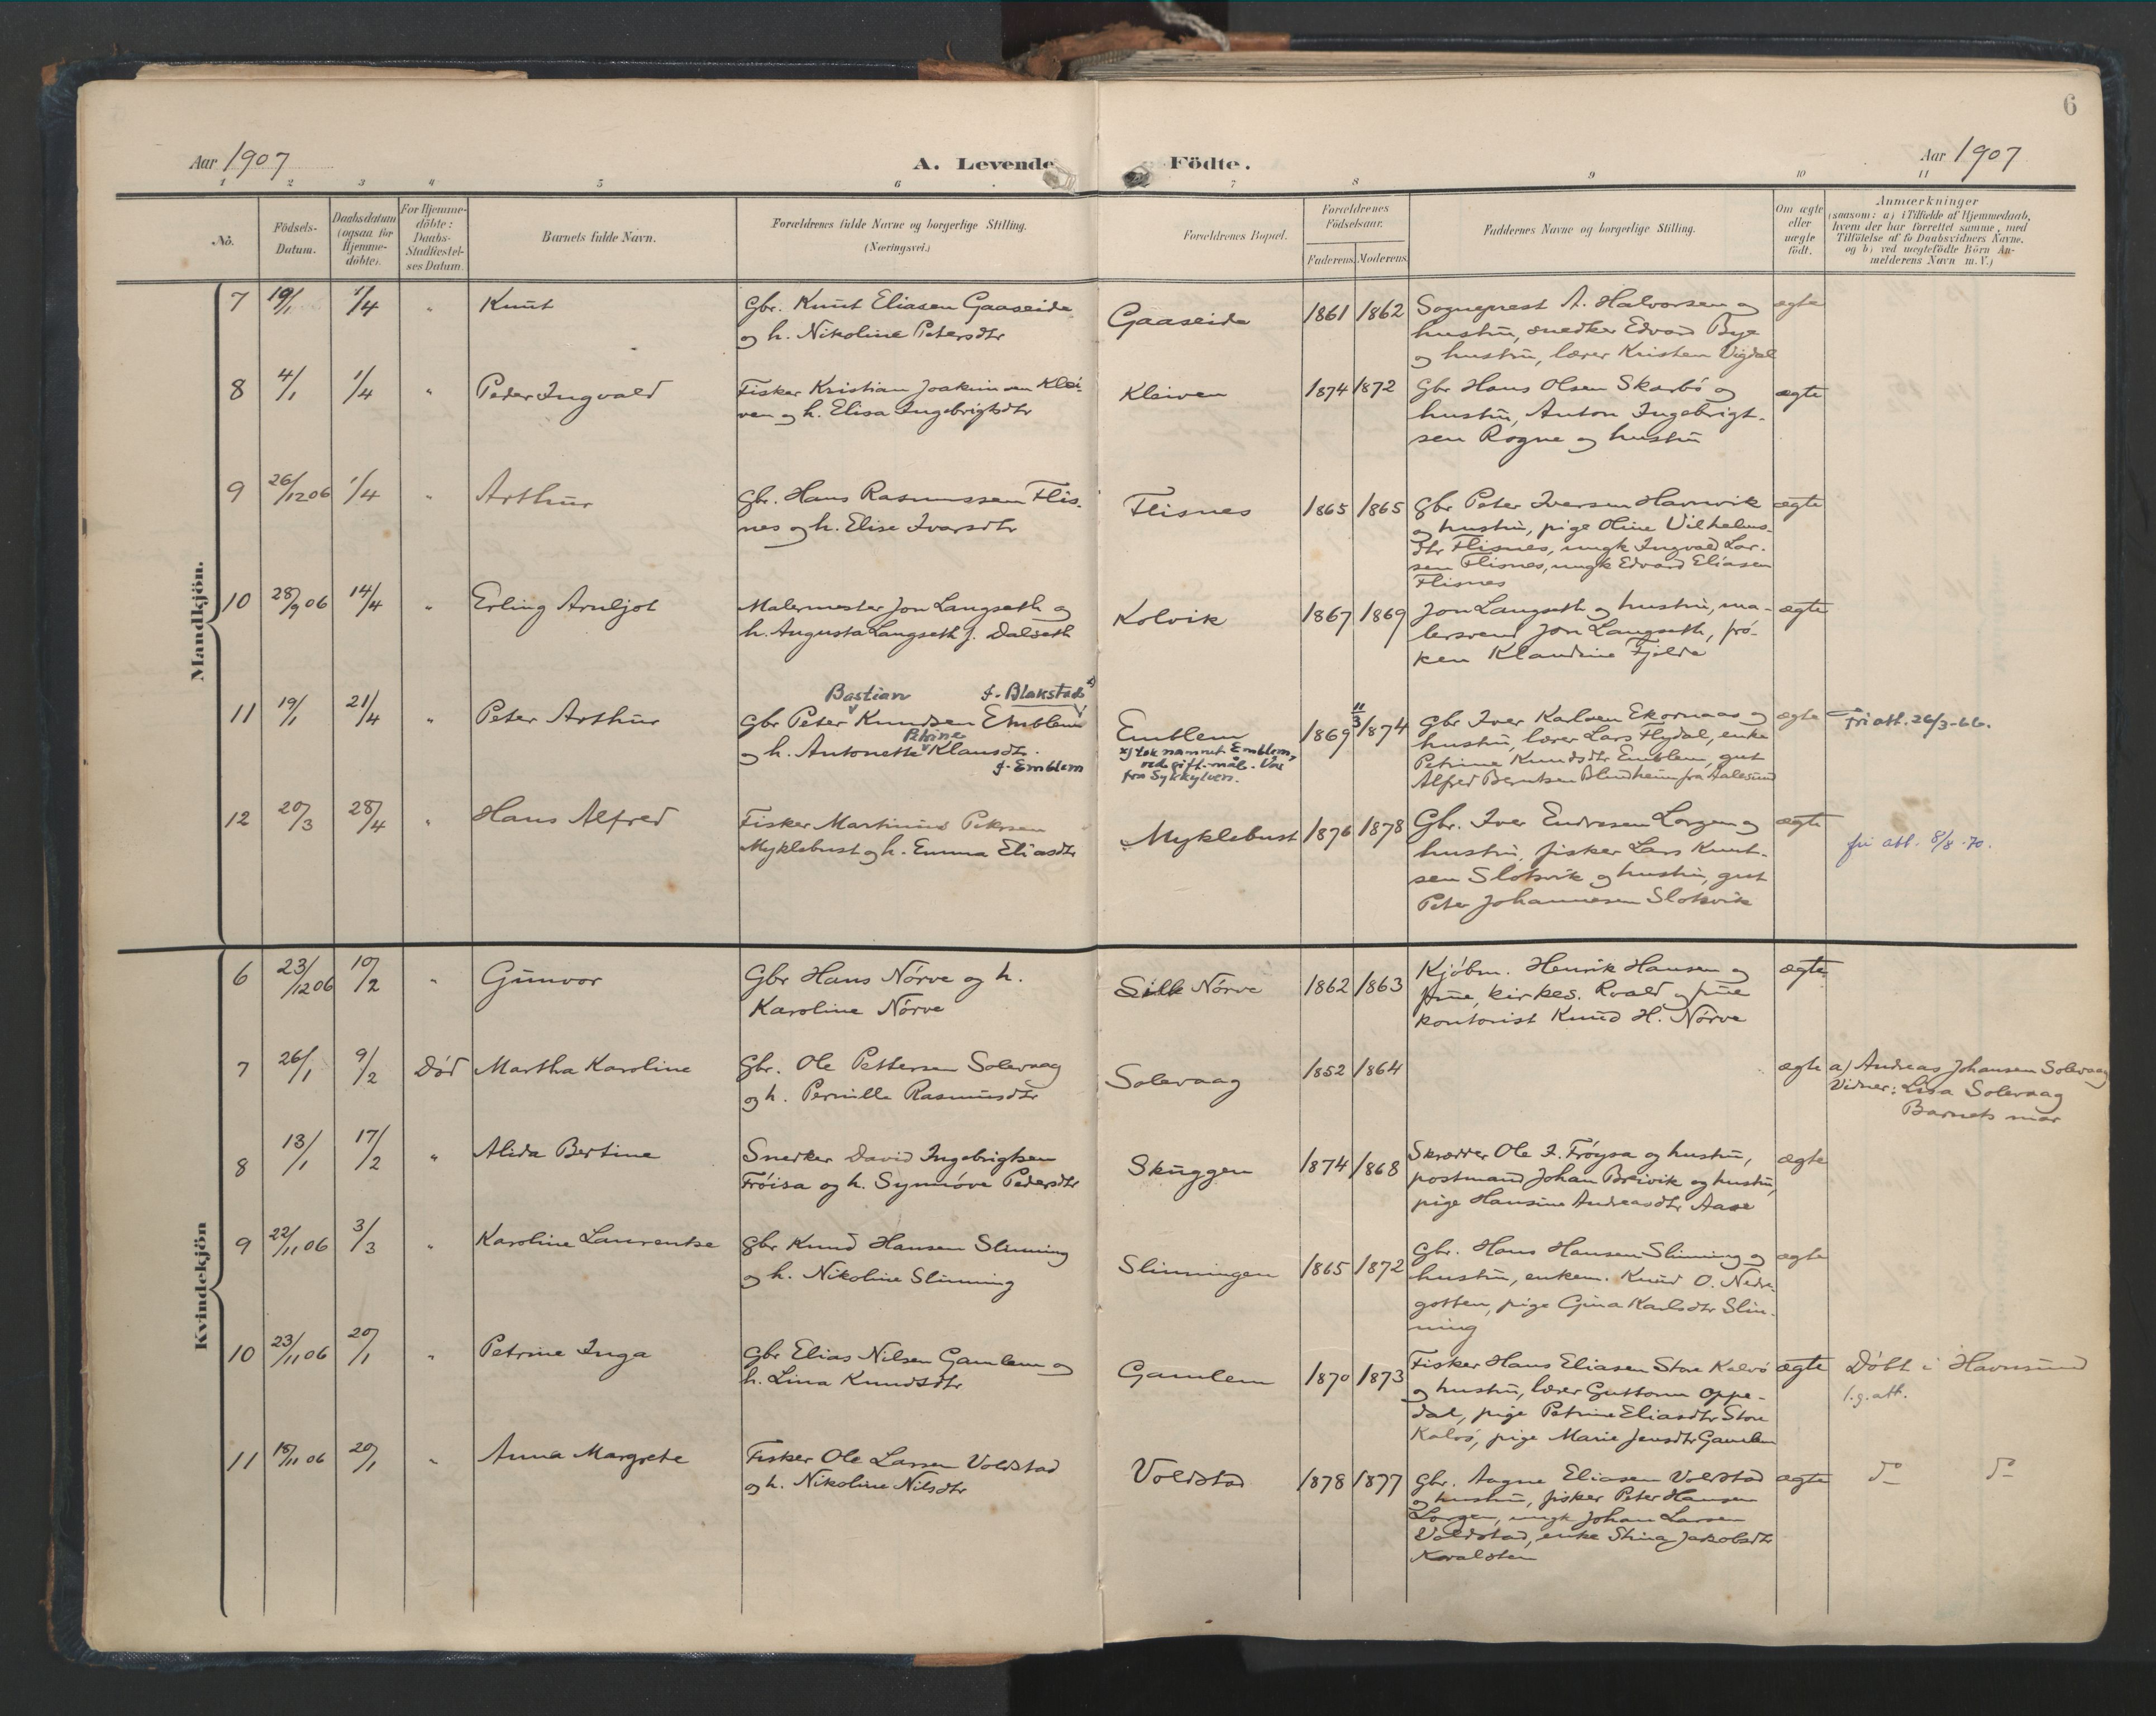 6
Aar 1907
A. Levende Födte.
Aar 1907
1 2 3 4 5 6 7 8 9 10 11
No.
Födsels-
Datum.
Daabsdatum
(ogsaa for
Hjemme-
döbte).
For Hjemme-
döbte:
Daabs-
Stadfæstel-
ses Datum.
Barnets fulde Navn.
Forældrenes fulde Navne og borgerlige Stilling.
(Næringsvei.)
Forældrenes Bopæl.
Forældrenes
Födselsaar.
Faderens. Moderens.
Faddernes Navne og borgerlige Stilling.
Om ægte
eller
uægte
födt.
Anmærkninger
(saasom: a) i Tilfælde af Hjemmedaab,
hvem der har forrettet samme, med
Tilföielse af to Daabsvidners Navne.
og b) ved uegtefödte Börn An-
melderens Navn m. V.)
Mandkjön.
7 19/1 1/4 " Knut
Gbr. Knut Eliasen Gaaseide
og h. Nikoline Petersdtr
Gaaseide 1861 1862
Sogneprest A. Halvorsen og
hustru, snedker Edvard Bye
og hustru, lærer Kristen Vigdal
ægte
8 4/1 1/4 " Peder Ingvald
Fisker Kristian Joakimsen Klei-
ven og h. Elisa Ingebrigtsdtr
Kleiven 1874 1872
Gbr Hans Olsen Skarbö og
hustru, Anton Ingebrigt-
sen Rogne og hustru
ægte
9 26/12 06 1/4 " Arthur
Gbr. Hans Rasmussen Flis-
nes og h. Elise Ivarsdtr
Flisnes 1865 1865
Gbr Peter Iversen Havnvik
og hustru, pige Oline Vilhelms-
dtr Flisnes, ungk Ingvald Lar-
sen Flisnes, ungk Edvard Eliasen
Flisnes
ægte
10 28/9 06 14/4 " Erling Arnljot
Malermester Jon Langseth og
h. Augusta Langseth f. Dalseth
Kolvik 1867 1869
Jon Langseth og hustru, ma-
lersvend Jon Langseth, frö-
ken Klaudine Fjelde
ægte
11 19/1 21/4 " Peter Arthur
Bastian f. Blakstad x)
Gbr Peter Knudsen Emblem
Petrine
og h. Antonette Klausdtr.
f. Emblem
Emblem
x) tok namnet Emblem,
ved gift.-mål. Var
fra Sykkylven.
1869 11/3 1874
Gbr Iver Karlsen Ekornaas og
hustru, lærer Lars Flydal, enke
Petrine Knudsdtr Emblem, gut
Alfred Berntsen Blindheim fra Aalesund
ægte
Fri att. 26/3-66.
12 20/3 28/4 " Hans Alfred
Fisker Martinus Petersen
Myklebust og h. Emma Eliasdtr
Myklebust 1876 1878
Gbr. Iver Endresen Longen og
hustru, fisker Lars Knut-
sen Slotsvik og hustru, gut
Peter Johannesen Slotsvik
ægte
fri att. 8/8-70.
Kvindekjön
6 23/12 06 10/2 " Gunvor
Gbr Hans Nörve og h.
Karoline Nörve
Nörve 1862 1863
Kjöbm. Henrik Hansen og
frue, kirkes. Roald og frue
kontorist Knud H. Nörve
ægte
7 26/1 9/2 Död Martha Karoline
Gbr. Ole Pettersen Solevaag
og h. Pernille Rasmusdtr
Solevaag 1852 1864
ægte
a) Andreas Johansen Solevaag
Vidner: Lisa Solevaag
Barnets mor
8 13/1 17/2 " Alida Bertine
Snedker David Ingebrigtsen
Fröisa og h. Synnöve Pedersdtr
Skuggen 1874 1868
Skrædder Ole I. Fröysa og hustru,
postmand Johan Breivik og hustru,
pige Hansine Andreasdtr Aase
ægte
9 22/11 06 3/3 " Karoline Laurentse
Gbr Knud Hansen Slinning
og h. Nikoline Slinning
Slinningen 1865 1872
Gbr. Hans Hansen Slinning og
hustru, enkem. Knud O. Nedre-
gotten, pige Gina Karlsdtr Slin-
ning
ægte
10 23/11 06 20/1 " Petrine Inga
Gbr Elias Nilsen Gamlem og
h. Lina Knudsdtr
Gamlem 1870 1873
Fisker Hans Eliasen Store Kalvö
og hustru, lærer Guttorm Oppe-
dal, pige Petrine Eliasdtr Store
Kalvö, pige Marie Jensdtr Gamlem
ægte
Döbt i Havnsund
l.g.att.
11 15/11 06 20/1 " Anna Margrete
Fisker Ole Larsen Voldstad
og h. Nikoline Nilsdtr
Voldstad 1878 1877
Gbr. Aagne Eliasen Voldstad
og hustru, fisker Peter Hansen
Longen, ungk Johan Larsen
Voldstad, enke Stina Jakobsdtr
ægte
do do